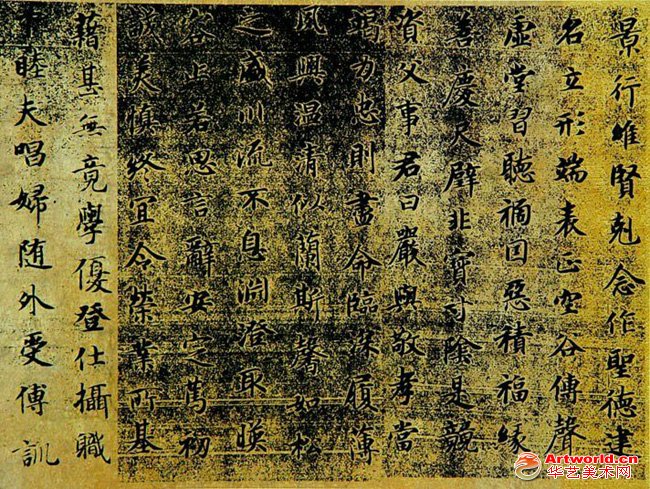 景行維賢剋念作聖德建
名立形端表正空谷傳聲
虛堂習聽禍因惡積福緣
善慶尺璧非寶寸陰是競
資父事君曰嚴與敬孝當
竭力忠則盡命臨深履薄
夙興温清似蘭斯馨如松
之盛川流不息淵澄取暎
容止若思言辭安定篤初
誠美慎終宜令榮業所基
藉甚無竟學優登仕攝職
睦夫唱婦随外受傅訓
Artworld.cn
华艺美术网